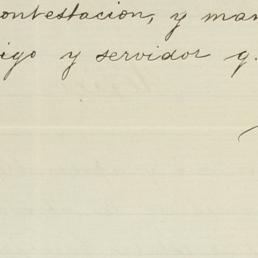 contestacion, y man
igo y servidor q.